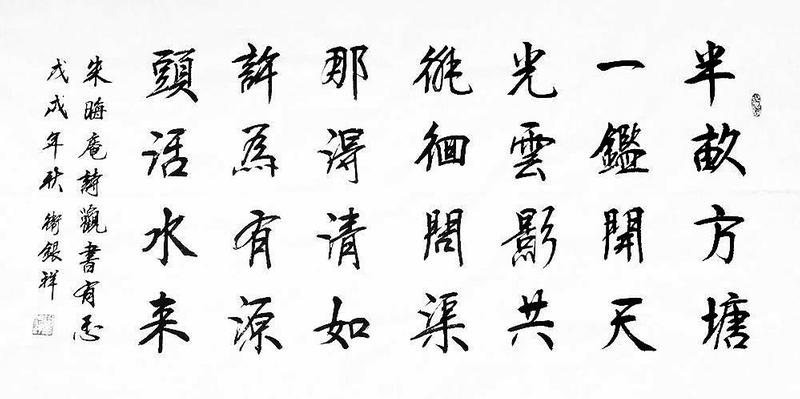 半畝方塘
一鑑開天
光雲影共
徘徊問渠
那得清如
許為有源
頭活水来
朱晦庵詩觀書有感
戊戌年秋 衛銀祥